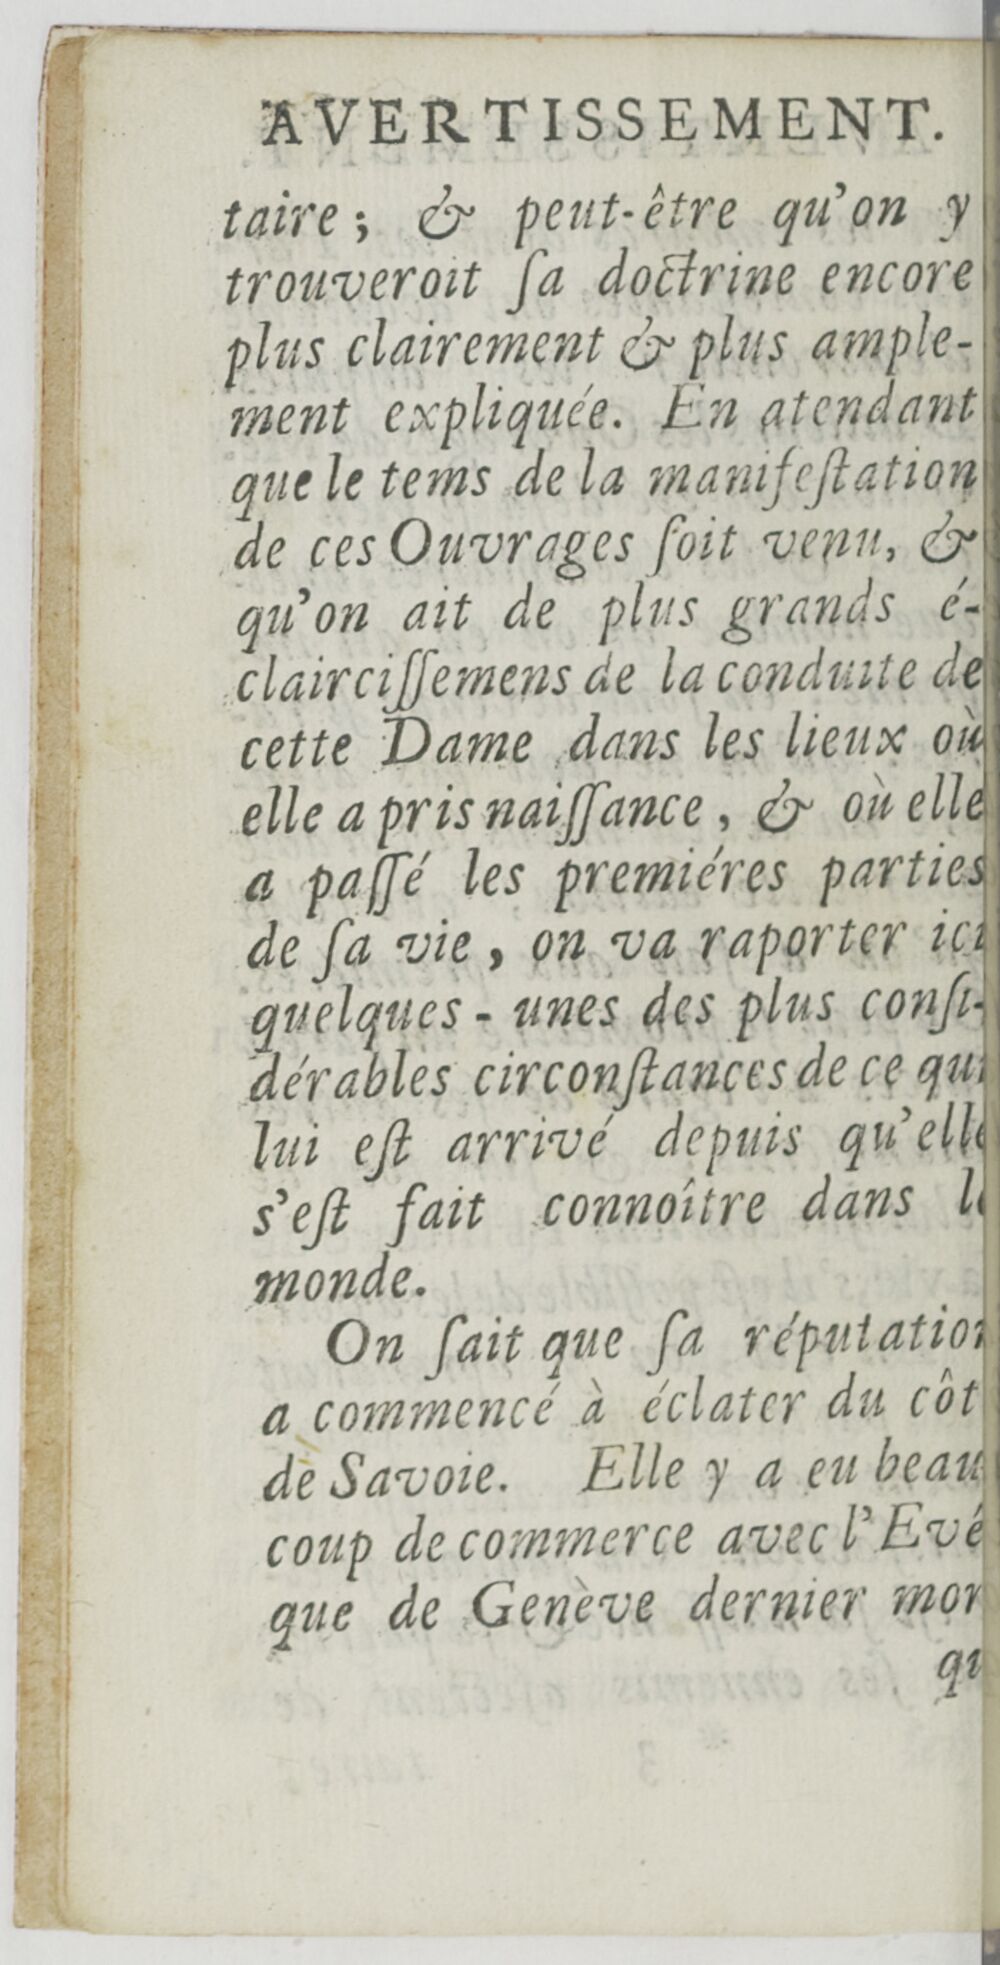 AVERTISSEMENT.
taire; & peut-être qu'on y
trouveroit ſa doctrine encore
plus clairement & plus ample-
ment expliquée. En atendant
que le tems de la manifeſtation
de ces Ouvrages ſoit venu, &
qu'on ait de plus grands é-
clairciſſemens de la conduite de
cette Dame dans les lieux où
elle a pris naiſſance, & où elle
a paſſé les premiéres parties
de ſa vie, on va raporter ici
quelques-unes des plus conſi-
dérables circonſtances de ce qui
lui eſt arrivé depuis qu'elle
s'eſt fait connoître dans le
monde.
On ſait que ſa réputation
a commencé à éclater du côt
de Savoie. Elle y a eu beau
coup de commerce avec l'Evé
que de Genève dernier mor
qu